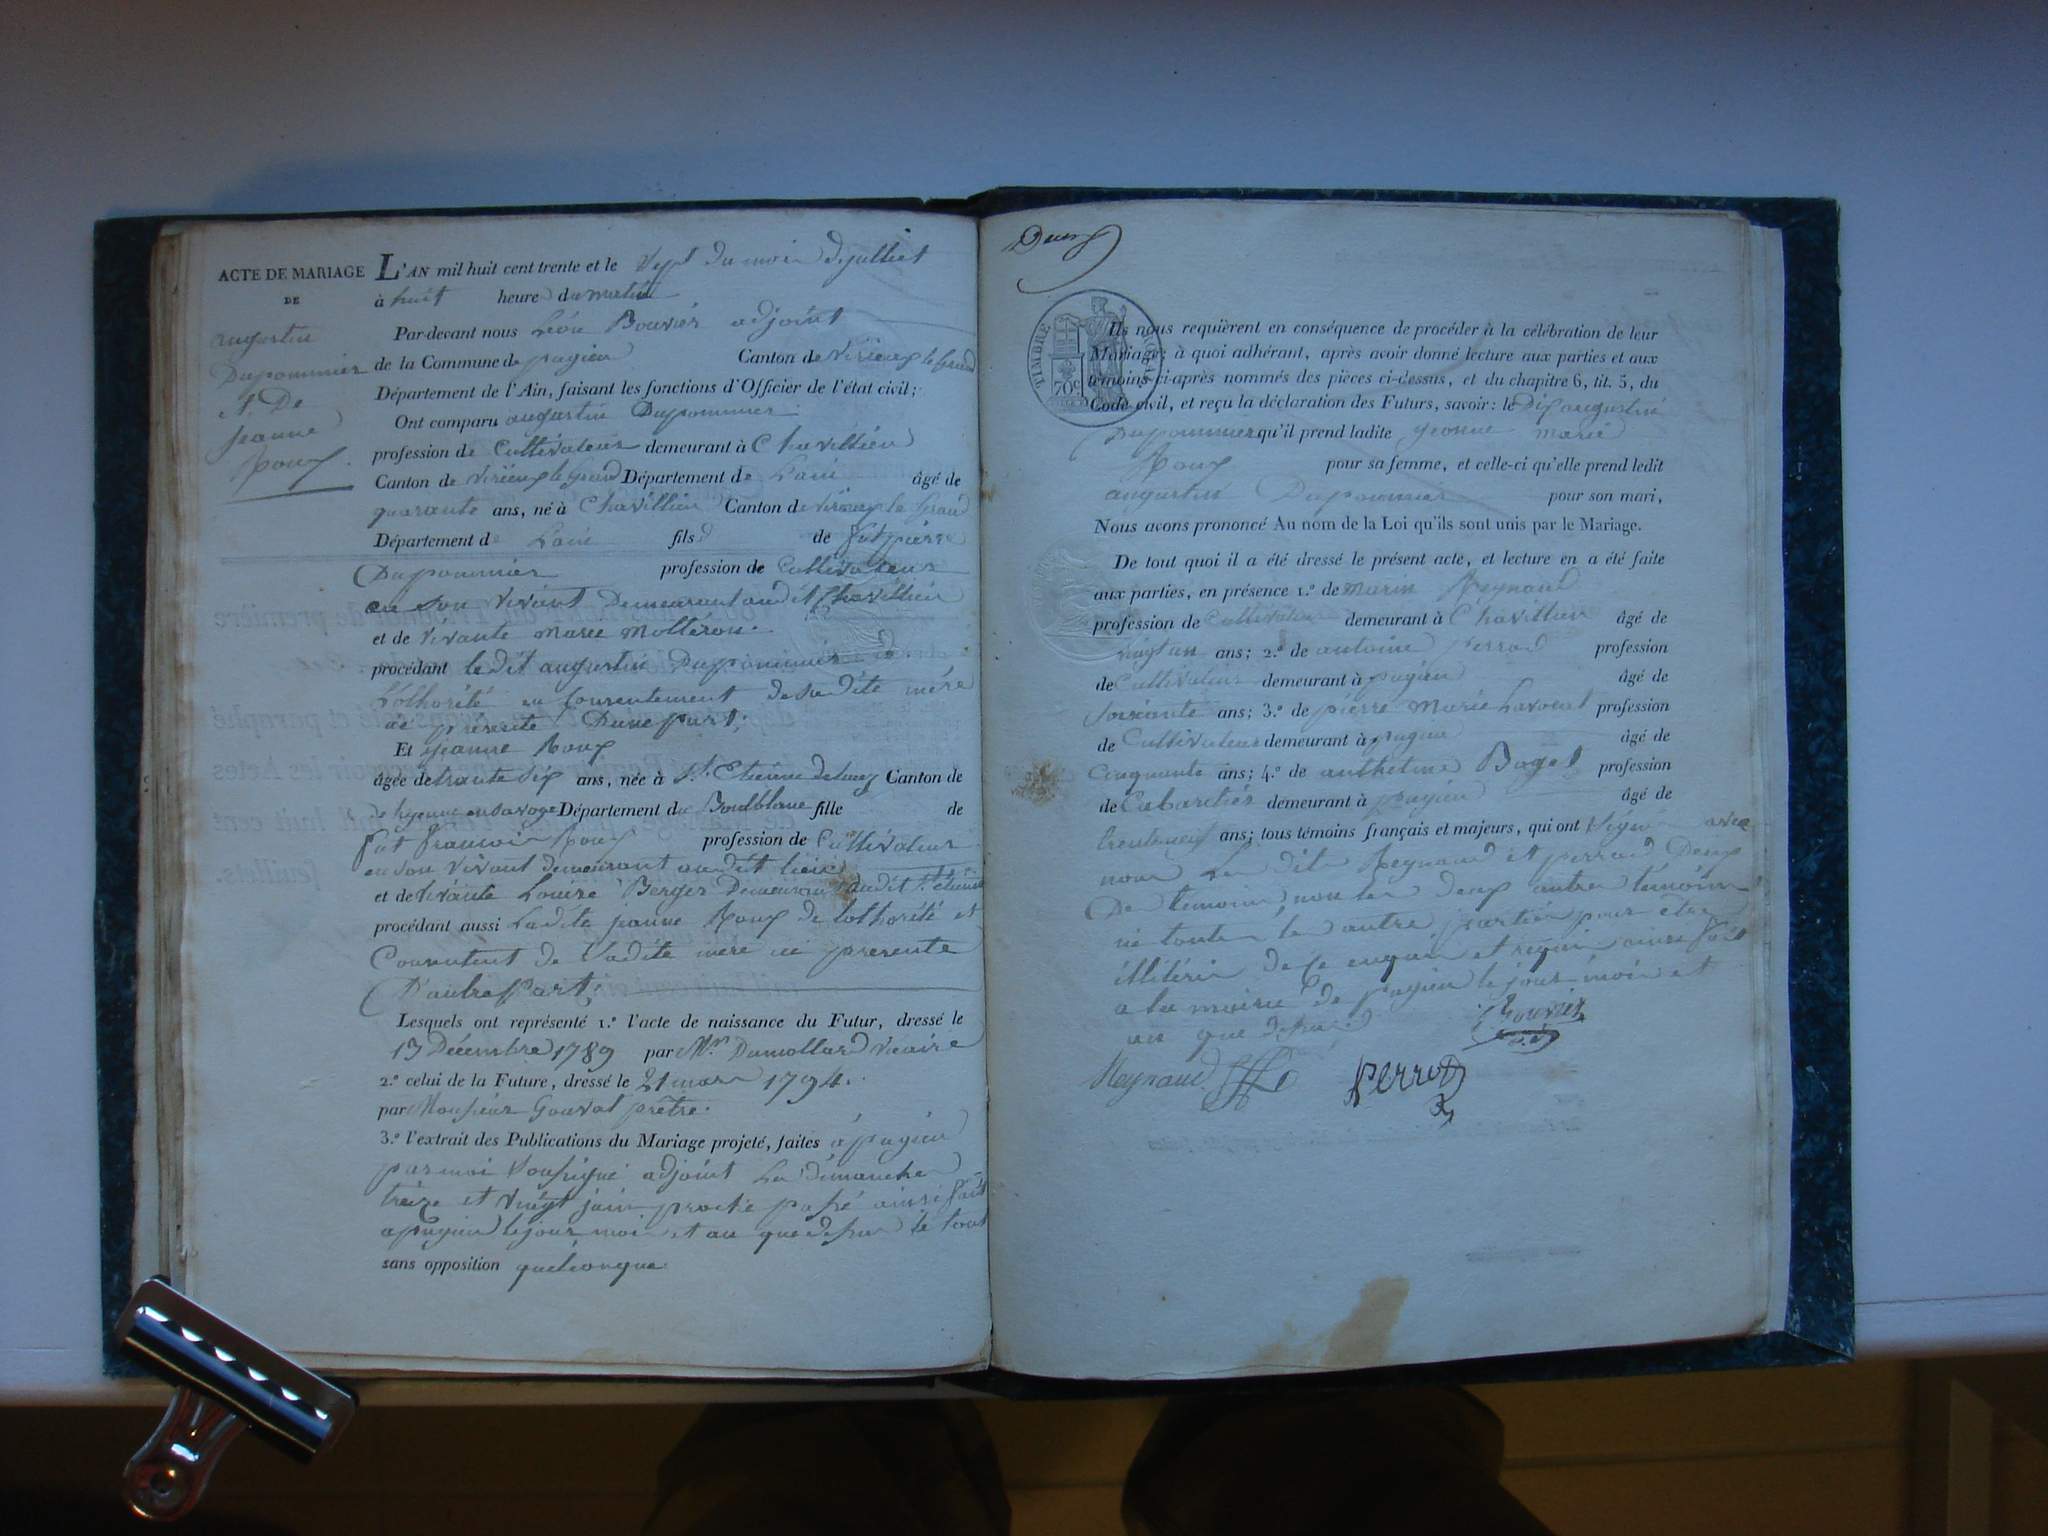 ACTE DE MARIAGE
DE
augustin
Dupommier
et De
Jeanne
Roux
L'AN mil huit cent trente et le Sept du mois de juillet
à huit heure du matin
Par-devant nous Léon Bouvier adjoint
de la Commune de pugieu Canton de Virieux le Grand
Département de l'Ain, faisant les fonctions d'Officier de l'état civil;
Ont comparu augustin Dupommier
profession de Cultivateur demeurant à Chavillieu
Canton de Virieux le Grand Département de Lain âgé de
quarante ans, né à Chavillieu Canton de Virieux le Grand
Département de Lain fils de fut pierre
Dupommier profession de Cultivateur
en son vivant Demeurant audit Chavillieu
et de vivante marie Molleron
procédant ledit augustin Dupommier de
Lothorité en Consentement de sadite mère
ici présente D'une part;
Et Jeanne Roux
âgée de trante six ans, née à St. Etienne Canton de
en Savoye Département du fille de
fut françois Roux profession de Cultivateur
en son vivant demeurant audit lieu
et de vivante Louise Berger Demeurant audit St. étienne
procédant aussi Ladite jeanne Roux de lothorité et
Consentent de Sadite mère ici presente
D'autre Part;
Lesquels ont représenté 1.º l'acte de naissance du Futur, dressé le
13 Décembre 1789 par Mr. Dumollard vicaire
2.º celui de la Future, dressé le 21 mars 1794.
par Monsieur prêtre.
3.º l'extrait des Publications du Mariage projeté, faites à pugieu
par moi Soussigné adjoint Les dimanche
treize et vingt juin proche passé ainsi fait
a pugieu le jour mois et an que dessus le tout
sans opposition quelconque
Deux
TIMBRE ROYAL
70 c
Ils nous requièrent en conséquence de procéder à la célébration de leur
Mariage; à quoi adhérant, après avoir donné lecture aux parties et aux
témoins ci-après nommés des pièces ci-dessus, et du chapitre 6, tit. 5, du
Code civil, et reçu la déclaration des Futurs, savoir: le Dit augustin
Dupommier qu'il prend ladite Jeanne marie
Roux pour sa femme, et celle-ci qu'elle prend ledit
augustin Dupommier pour son mari,
Nous avons prononcé Au nom de la Loi qu'ils sont unis par le Mariage.
De tout quoi il a été dressé le présent acte, et lecture en a été faite
aux parties, en présence 1.º de marin Reynaud
profession de Cultivateur demeurant à Chavillieu âgé de
vingt un ans; 2.º de antoine Perrod profession
de Cultivateur demeurant à pugieu âgé de
soixante ans; 3.º de pierre marie profession
de Cultivateur demeurant à pugieu âgé de
Cinquante ans; 4.º de anthelme profession
de Cabaretier demeurant à pugieu âgé de
trenteneuf ans; tous témoins français et majeurs, qui ont Signé avec
nous Les dit Reynaud et perrod Deux
De temoins, non les deux autres témoins
ni toutes les autres parties pour être
illitéri de ce enquis et requis ainsi fait
a la mairie de pugieu le jour mois et
an que dessus
Bouvier
Reynaud Perrod